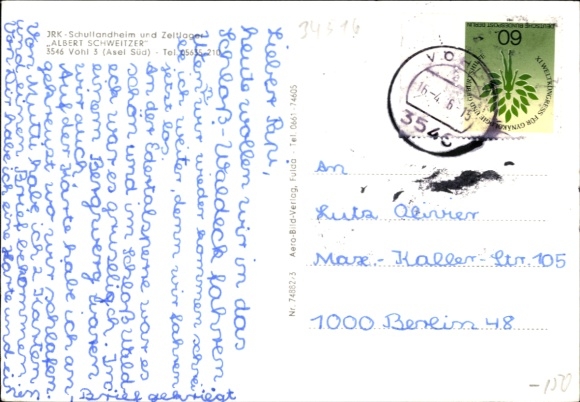 JRK-Schullandheim und Zeltlager
"ALBERT SCHWEITZER"
3546 Vöhl 3 (Asel Süd) - Tel. 05635-210
34516
Lieber Papi,
heute wollen wir in das
Schloß-Waldeck fahren.
Wenn wir wieder kommen schrei-
be ich weiter, denn wir fahren
jetzt los.
An der Edertalsperre war es
schön und im Schloß Wald-
eck war es gruselig. In
einem Bergwerg waren
wir auch.
Auf der Karte habe ich an-
gekreuzt wo wir schlafen.
Von Mutti habe ich 2 Karten
und einen Brief bekommen
Von dir habe ich eine Karte und einen
Brief gekriegt
Nr. 74882/5 Aero-Bild-Verlag, Fulda Tel. 0661-74605
60
DEUTSCHE BUNDESPOST BERLIN
WELTKONGRESS FÜR GYNÄKOLOGIE UND
3546
An
Lutz
Max-Kaller-Str. 105
1000 Berlin 48
-150